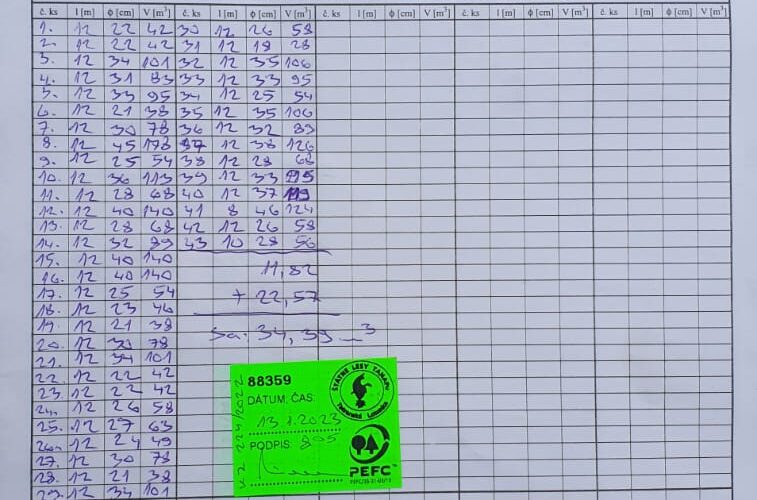 č. ks l [m] ϕ [cm] V [m³] č. ks l [m] ϕ [cm] V [m³] č. ks l [m] ϕ [cm] V [m³] č. ks l [m] ϕ [cm] V [m³] č. ks l [m] ϕ [cm] V [m³]
1. 12 22 42 30 12 26 58
2. 12 22 42 31 12 18 28
3. 12 34 101 32 12 35 106
4. 12 31 83 33 12 33 95
5. 12 33 95 34 12 25 54
6. 12 21 38 35 12 35 106
7. 12 30 78 36 12 32 89
8. 12 45 178 37 12 38 126
9. 12 25 54 38 12 28 68
10. 12 36 113 39 12 33 95
11. 12 28 68 40 12 37 119
12. 12 40 140 41 8 46 124
13. 12 28 68 42 12 26 58
14. 12 32 89 43 10 28 56
15. 12 40 140
16. 12 40 140 11,82
17. 12 25 54 + 22,57
18. 12 23 46
19. 12 21 38 Sa: 34,39 m³
20. 12 30 78
21. 12 34 101
22. 12 22 42
23. 12 22 42
24. 12 26 58
25. 12 27 63
26. 12 24 49
27. 12 30 78
28. 12 21 38
29. 12 34 101
88359
DÁTUM, ČAS:
13.1.2023
PODPIS: 805
ŠTÁTNE LESY TANAPU
Tatranská Lomnica
PEFC